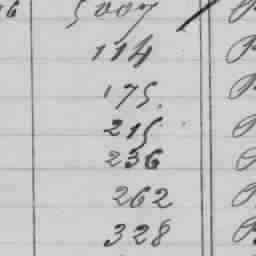 16 5007 P
114 P
175. P
215 P
236 P
262 P
328 P